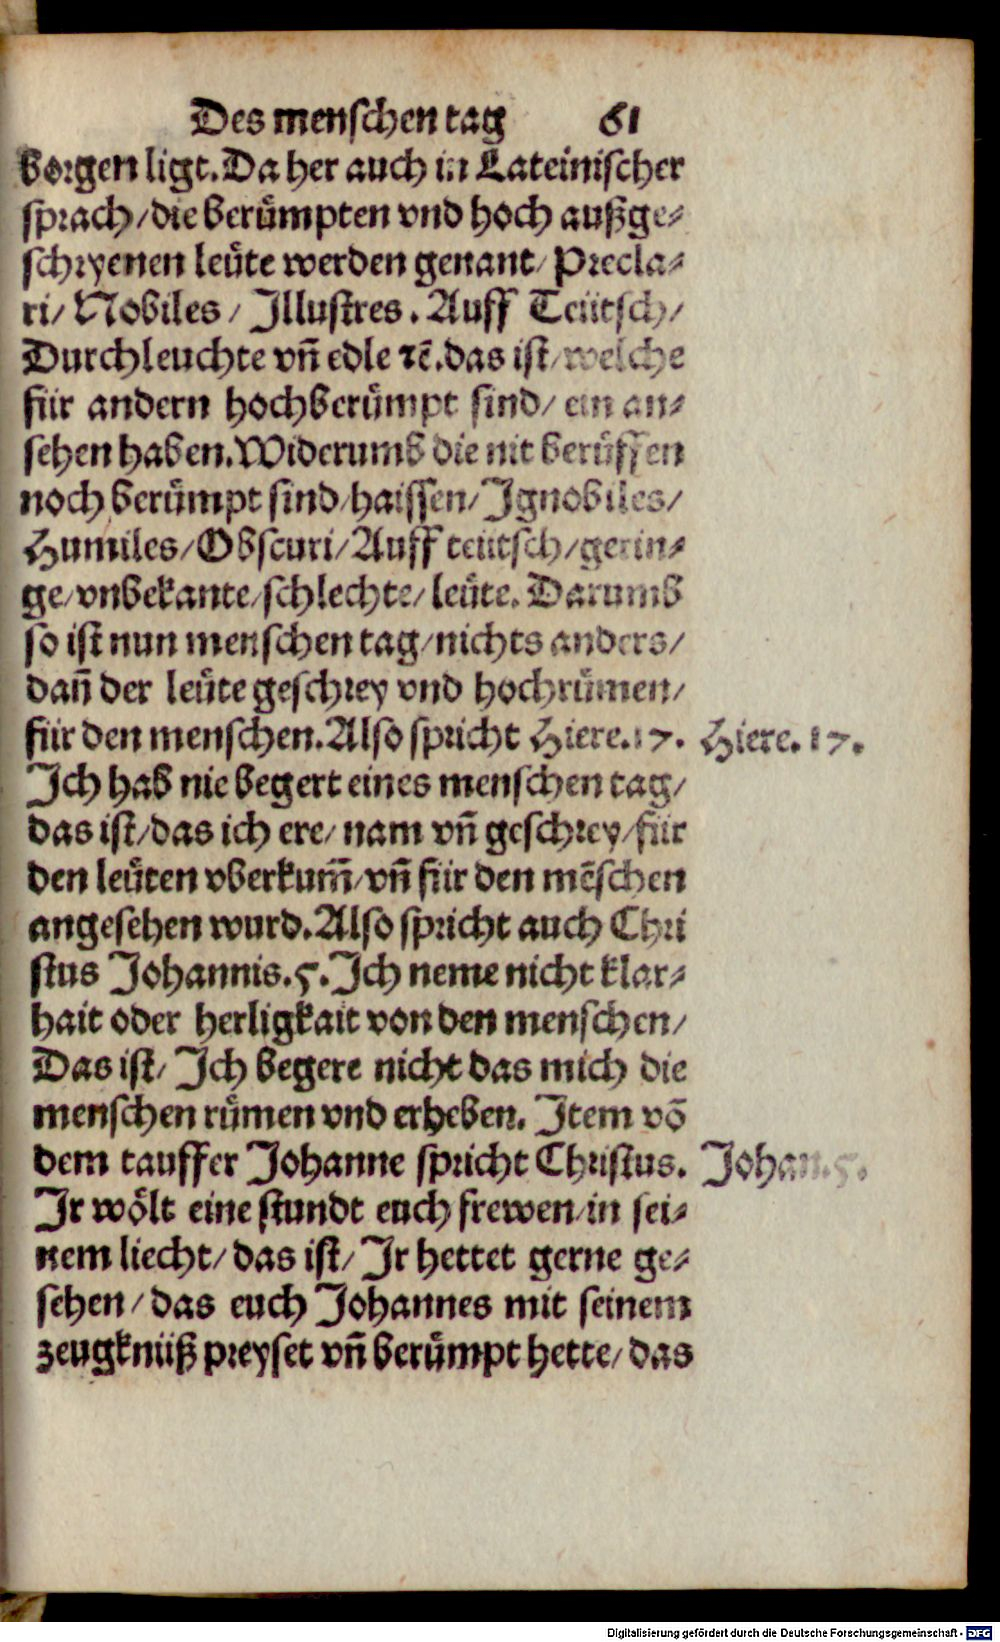 Des menschen tag 61
borgen ligt. Da her auch in Lateinischer
sprach / die berůmpten vnd hoch außge⸗
schryenen leůte werden genant / Precla⸗
ri / Nobiles / Illustres. Auff Teütsch /
Durchleuchte vñ edle ꝛc̄. das ist / welche
für andern hochberůmpt sind / ein an⸗
sehen haben. Widerumb die nit berůffen
noch berůmpt sind / haissen / Ignobiles /
Humiles / Obscuri / Auff teütsch / gerin⸗
ge / vnbekante / schlechte / leůte. Darumb
so ist nun menschen tag / nichts anders /
dañ der leůte geschrey vnd hochrůmen /
für den menschen. Also spricht Hiere. 17. Hiere. 17.
Ich hab nie begert eines menschen tag /
das ist / das ich ere / nam vñ geschrey / für
den leůten vberkum̄ / vñ für den mēschen
angesehen wurd. Also spricht auch Chri
stus Johannis. 5. Ich neme nicht klar⸗
hait oder herligkait von den menschen /
Das ist / Ich begere nicht das mich die
menschen růmen vnd erheben. Item võ
dem tauffer Johanne spricht Christus. Johan. 5.
Ir wőlt eine stundt euch frewen / in sei⸗
nem liecht / das ist / Ir hettet gerne ge⸗
sehen / das euch Johannes mit seinem
zeugknüß preyset vñ berůmpt hette / das
Digitalisierung gefördert durch die Deutsche Forschungsgemeinschaft - DFG